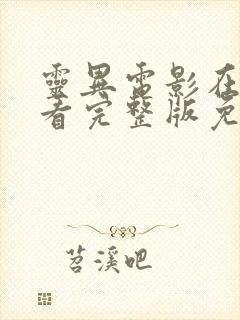 靈異電影在
看完整版免
苕溪吧